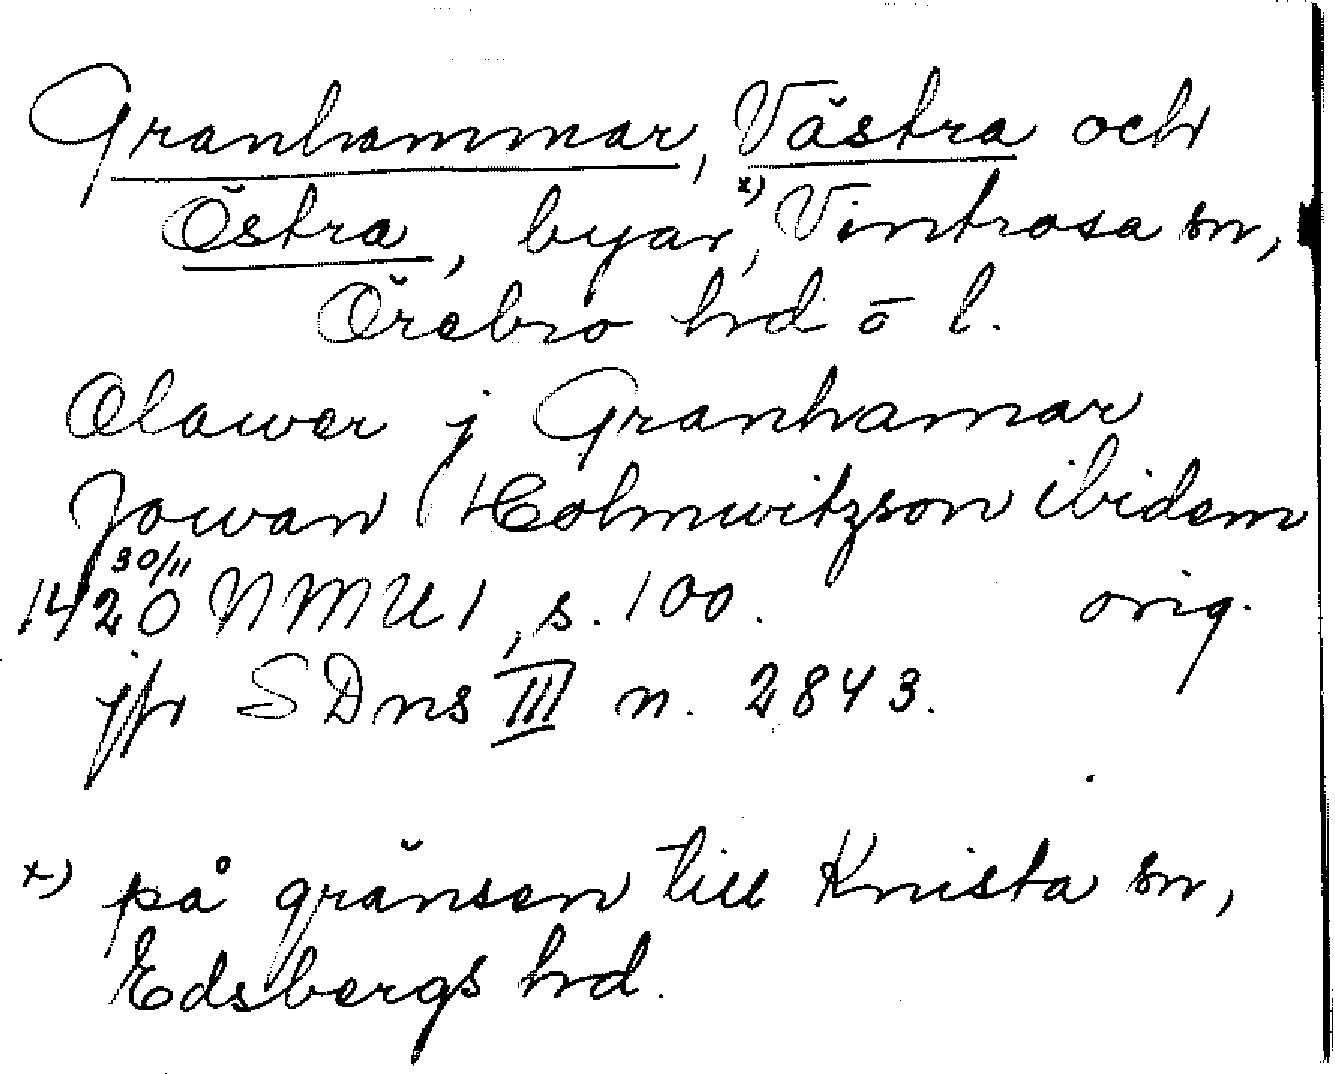 Granhammar, Västra och
Östra, byar x), Vintrosa sn,
Örebro hd o l.
Olawer j Granhamar
Jowan Holmwitzson ibidem
1420 30/11 NMU 1, s. 100. orig.
jfr SDns III n. 2843.
x) på gränsen till Knista sn,
Edsbergs hd.